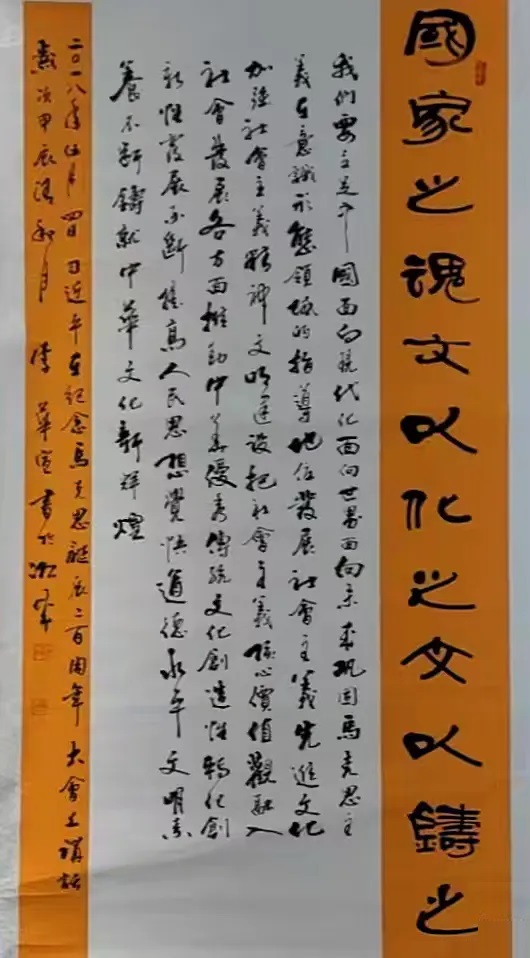 國家之魂文以化之文以鑄之
我們要立足中國面向現代化面向世界面向未來巩固馬克思主
義在意識形態領域的指導地位發展社會主義先進文化
加強社會主義精神文明建設把社會主義核心價值觀融入
社會發展各方面推動中華優秀傳統文化創造性轉化創
新性發展不斷提高人民思想覺悟道德水平文明素
養不斷鑄就中華文化新輝煌
二〇一八年伍月四日习近平在紀念馬克思誕辰二百周年大會上講話
歲次甲辰清和月 華宣書於